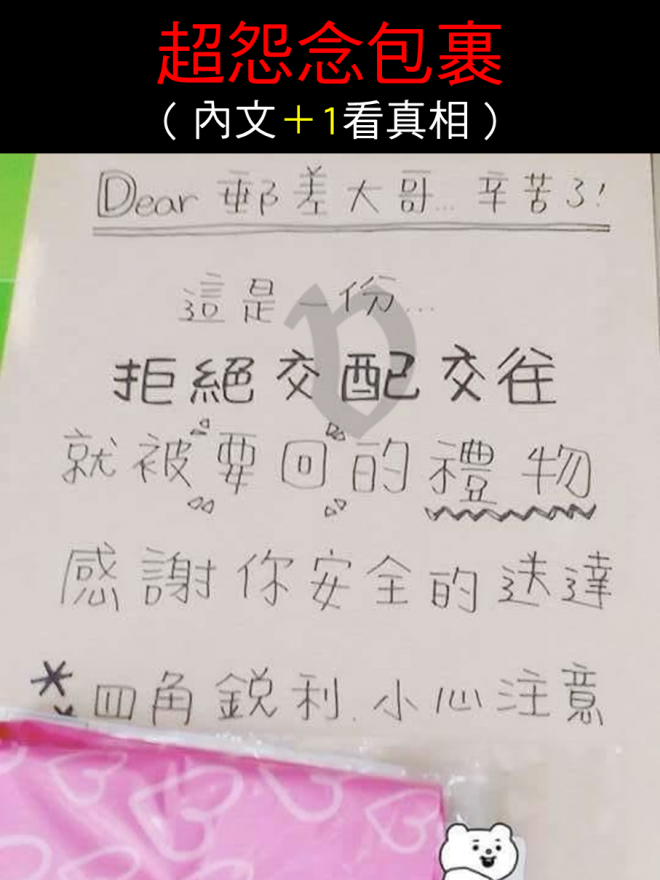 超怨念包裹
（內文＋1看真相）
Dear 郵差大哥... 辛苦了!
這是一份...
拒絕交配交往
就被要回的禮物
感謝你安全的送達
* 四角銳利.小心注意